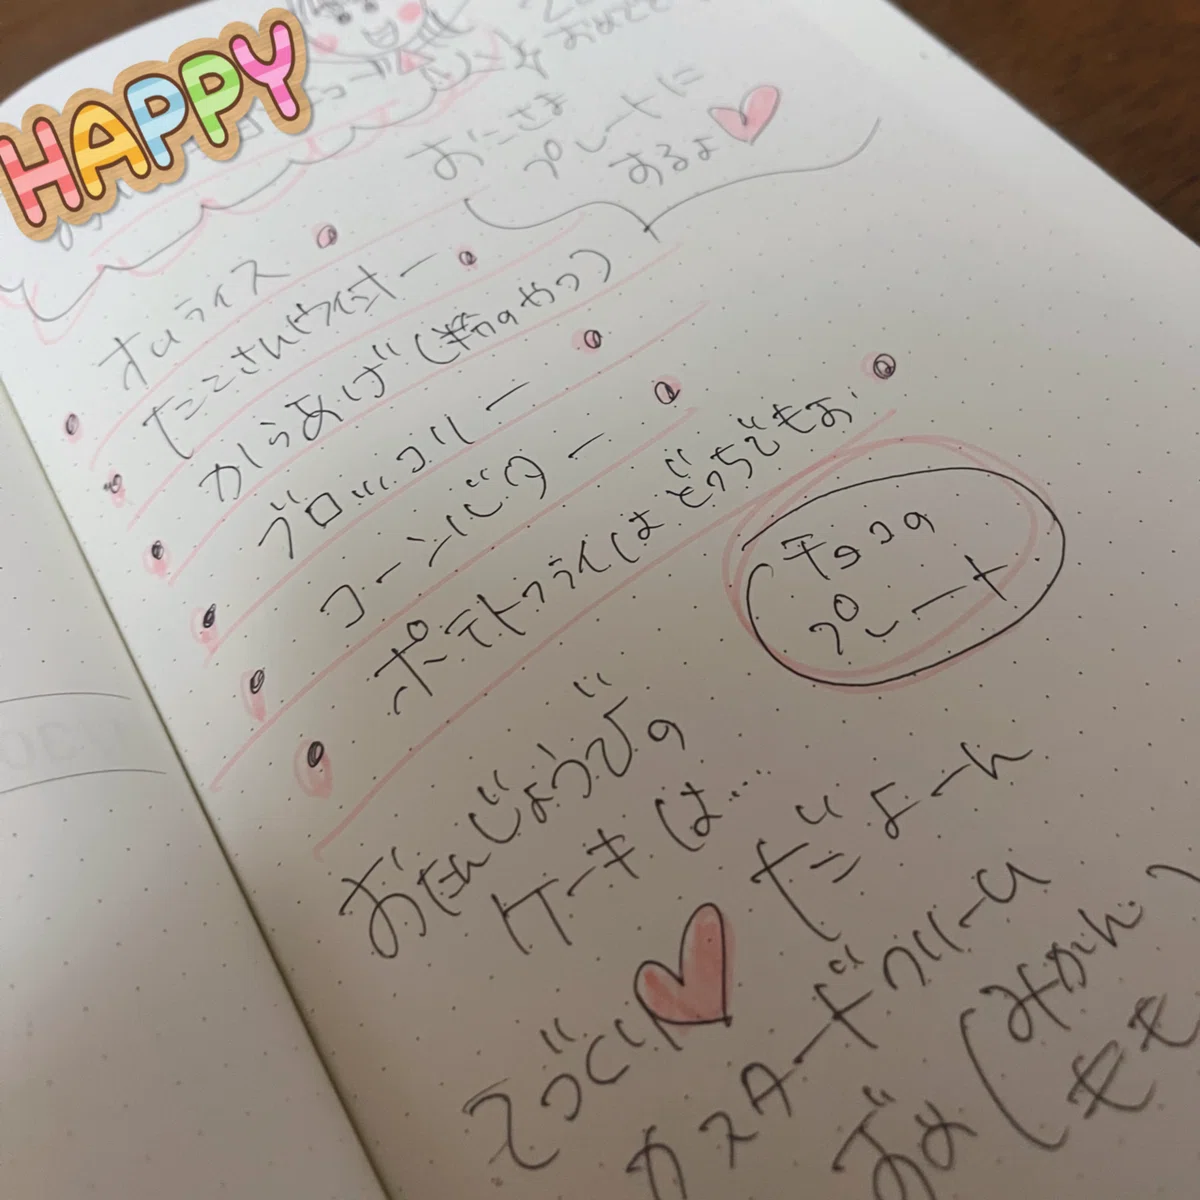 HAPPY
おこさま
プレートに
するよ
オムライス
たこさんウインナー
からあげ(ギョウムのやつ)
ブロッコリー
コーンバター
ポテトフライはどっちでもお
チョコの
プレート
おたんじょうびの
ケーキは...
てづくりだよーん
カスタードクリーム
(みかん
もも